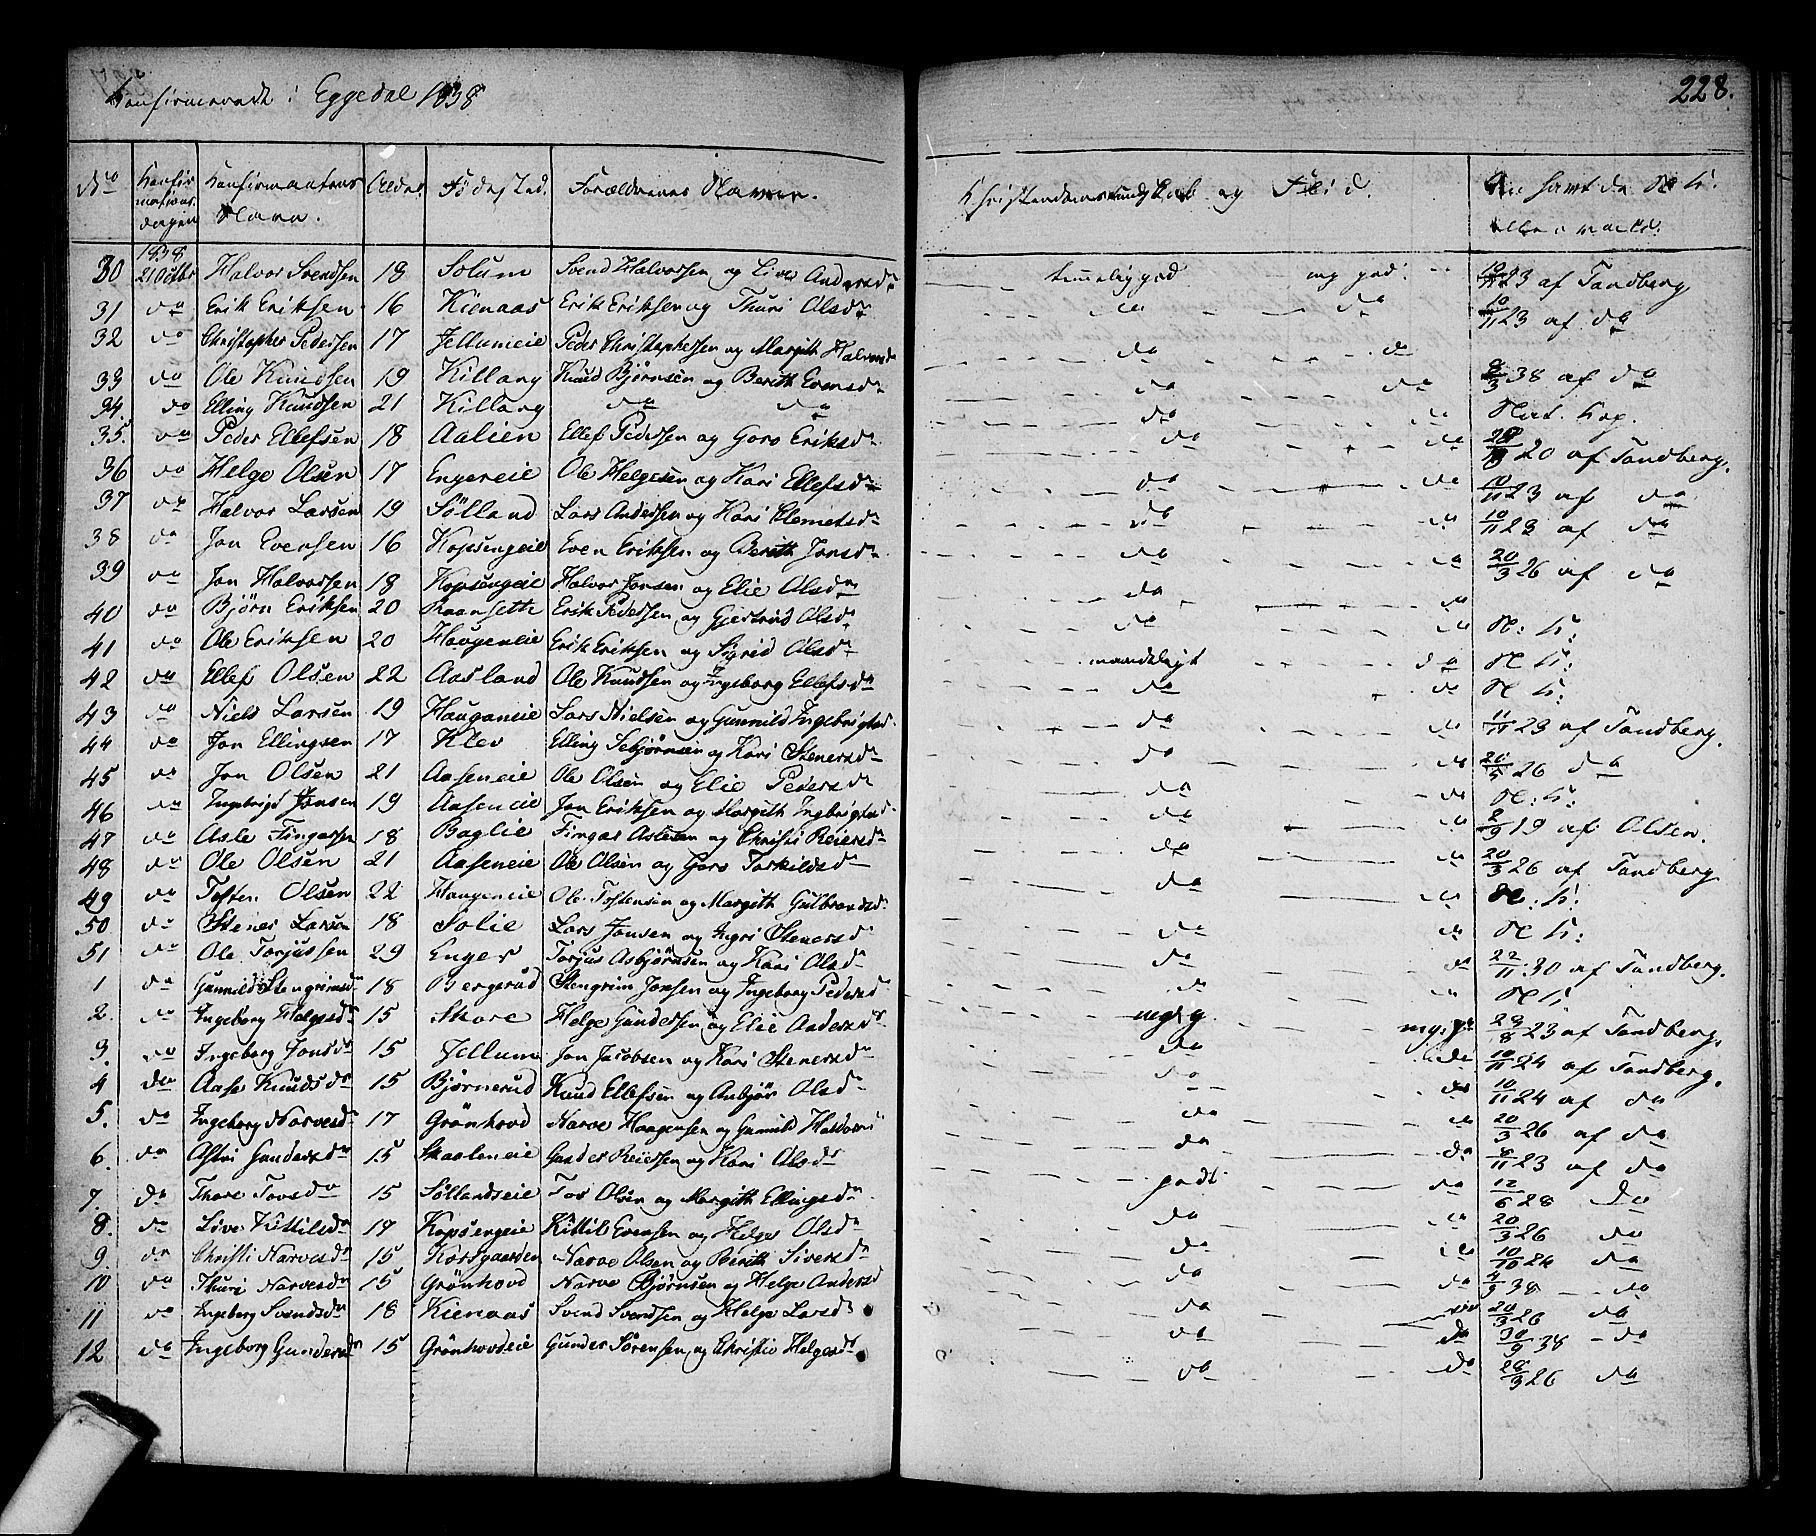 Konfirmerede i Eggedal 1838
228.
No Konfirmationsdagen Konfirmantens Navn. Alder Fødested. Forældrenes Navne. Khristendomskundskab og Flid.
30 1838 21 Octbr Halvor Svendsen 18 Solum Svend Halvorsen og Live Andersdr temmelig god og god. 10/11 23 af Tandberg
31 do Erik Eriksen 16 Kienaas Erik Eriksen og Thuri Olsdr do do 10/11 23 af do
32 do Christopher Pedersen 17 Jellumeie Peder Christophersen og Margith Halvorsd do do
33 do Ole Knudsen 19 Killang Knud Bjørnsen og Berith Evensdr do do 8/3 38 af do
34. do Elling Knudsen 21 Killang do do do do Nat. Kop.
35. do Peder Ellefsen 18 Aalien Ellef Pedersen og Goro Eriksdr do do 20 af Tandberg.
36 do Helge Olsen 17 Engereie Ole Helgesen og Kari Ellefsdr do do 10/11 23 af do
37 do Halvor Larsen 19 Sölland Lars Andersen og Kari Clemetsdr do do 10/11 23 af do
38 do Jon Evensen 16 Kopsengeie Even Eriksen og Berith Jonsdr do do 20/3 26 af do
39 do Jon Halvorsen 18 Kopsengeie Halvor Jonsen og Elie Olsdr do do
40 do Bjørn Eriksen 20 Raansette Erik Pedersen og Gjertrud Olsdr do do N: K:
41 do Ole Eriksen 20 Haugeneie Erik Eriksen og Sigrid Olsdr maadeligt do N K:
42 do Ellef Olsen 22 Aasland Ole Knudsen og Ingeborg Ellefsdr do do N K:
43 do Niels Larsen 19 Haugeneie Lars Nielsen og Gunnild Ingebrigtsd. do do 11/11 23 af Tandberg.
44 do Jon Ellingsen 17 Klev Elling Sebjørnsen og Kari Stenersdr do do 26 do
45 do Jon Olsen 21 Aaseneie Ole Olsen og Elie Pedersdr do do N: K:
46 do Ingebrigt Jonsen 19 Aaseneie Jon Eriksen og Margith Ingbrigtsd. do do 2/9 19 af Olsen.
47 do Asle Fingarsen 18 Baglie Fingar Aslesen og Christi Reiersdr do do 20/3 26 af Tandberg
48 do Ole Olsen 21 Aaseneie Ole Olsen og Goro Torkildsdr do do N: K:
49 do Tosten Olsen 22 Haugeneie Ole Tostensen og Margith Gulbrandsdr do do N K:
50 do Stener Larsen 18 Solie Lars Jonsen og Ingri Stenersd do do 22/11 30 af Tandberg.
51 do Ole Torjussen 29 Enger Torjus Asbjørnsen og Kari Olsdr do do N K
1 do Gunnild Stengrimsdr 18 Bergerud Stengrim Jonsen og Ingeborg Pedersd megg. 23 af Tandberg.
2. do Ingeborg Helgesdr 15 Skare Helge Gundersen og Elie Andersdr do do 10/11 24 af Tandberg.
3. do Ingeborg Jonsdr 15 Jellum Jon Jacobsen og Kari Stenersdr do do 10/11 24 af do
4 do Aase Knudsdr 15 Bjørnerud Knud Ellefsen og Anbjør Olsdr do do 20/3 26 af do
5. do Ingeborg Narvesdr 17 Grönhovd Narve Haagensen og Gunnild do do 8/11 23 af do
6. do Astri Gundersdr 15 Skaaleneie Gunder Reiersen og Kari Olsdr godt do 12/6 28 do
7. do Thore Tovsdr 15 Söllandseie Tov Olsen og Margith Ellingsdr do do 20/3 26 do
8. do Live Kittilsdr 19 Kopsengeie Kittil Evensen og Helge Olsdr do do 10/10 24 do
9. do Christi Narvesdr 15 Korsgaarden Narve Olsen og Berith Siversdr do do 4/3 38 do
10 do Thuri Narvesdr 15 Grönhovd Narve Bjørnsen og Helge Andersd do 20/3 26 do
11 do Ingeborg Svendsdr 18 Kienaas Svend Svendsen og Helge Larsd do do 30/9 38 do
12 do Ingeborg Gundersdr 15 Grönhovdseie Gunder Sørensen og Christie Helgesdr do do 28/3 26 do